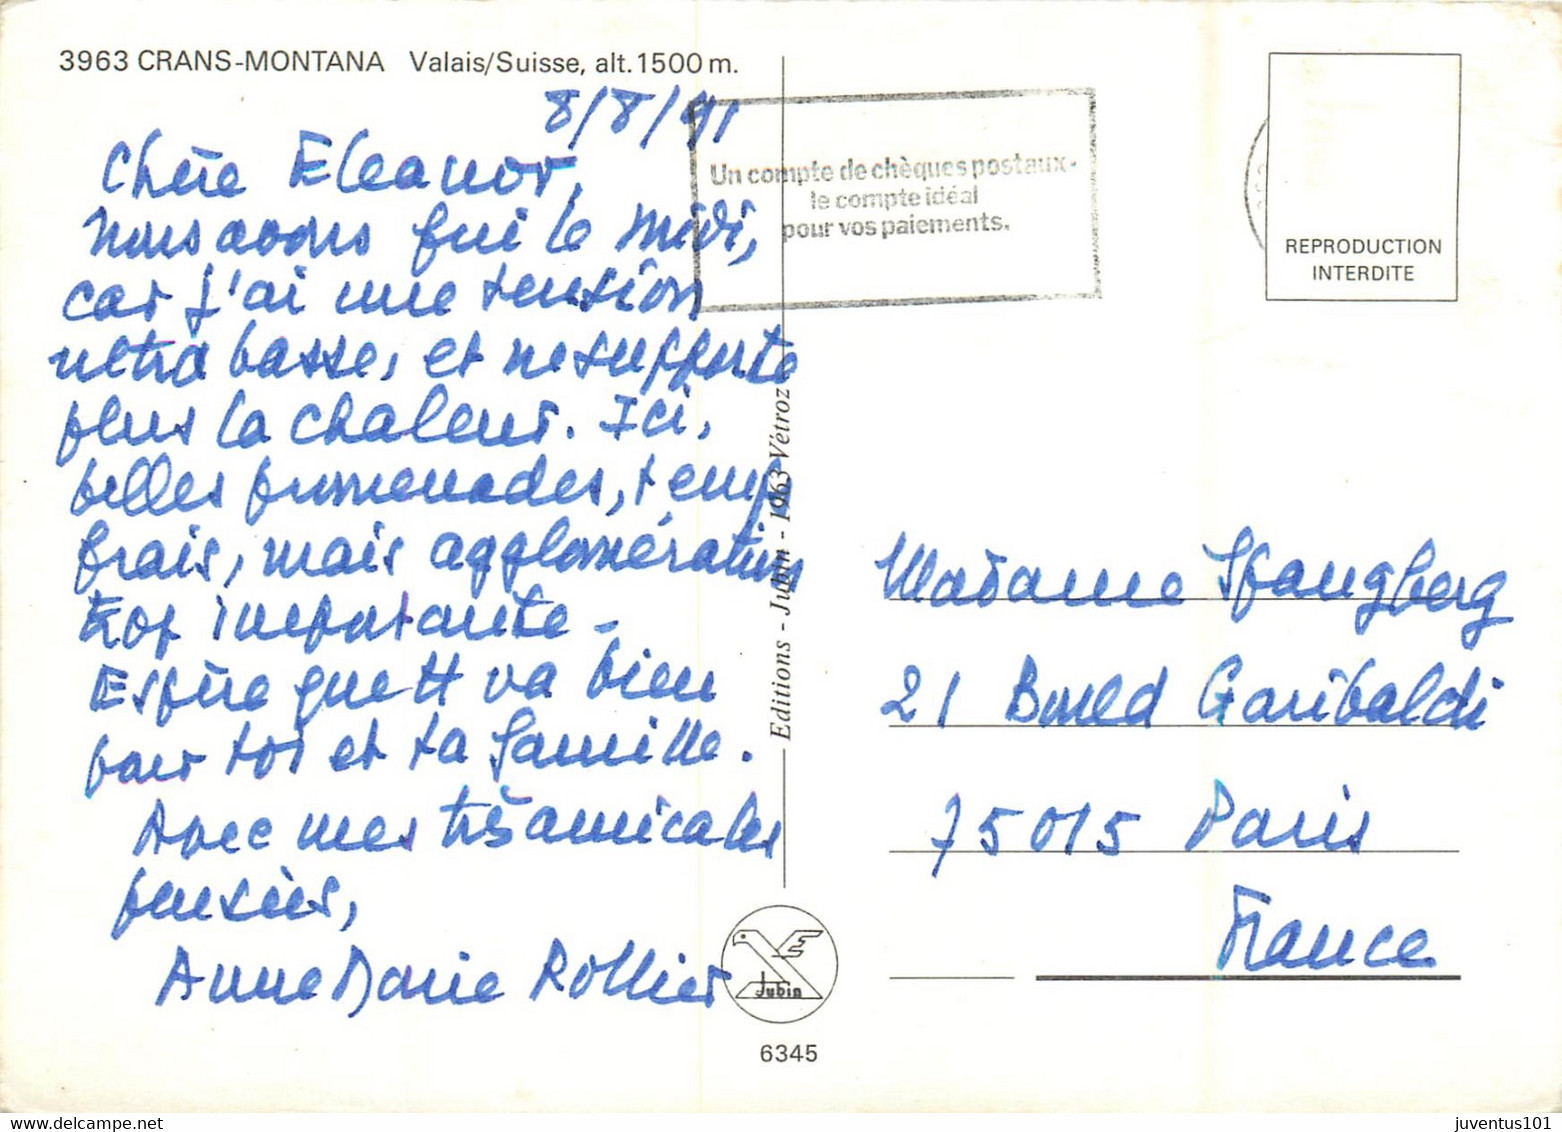 3963 CRANS-MONTANA Valais/Suisse, alt. 1500 m.
8/8/91
Chère Eleanor,
nous avons fui le midi,
car j'ai une tension
ultra basse, et ne supporte
plus la chaleur. Ici,
belles promenades, temps
frais, mais agglomération
trop importante -
Espère que tt va bien
pour toi et ta famille.
Avec mes très amicales
pensées,
Anne Marie Rollier
Un compte de chèques postaux-
le compte idéal
pour vos paiements.
REPRODUCTION
INTERDITE
Editions - Jubin - 1963 Vétroz
Madame Spangberg
21 Bould Garibaldi
75015 Paris
France
Jubin
6345
juventus101